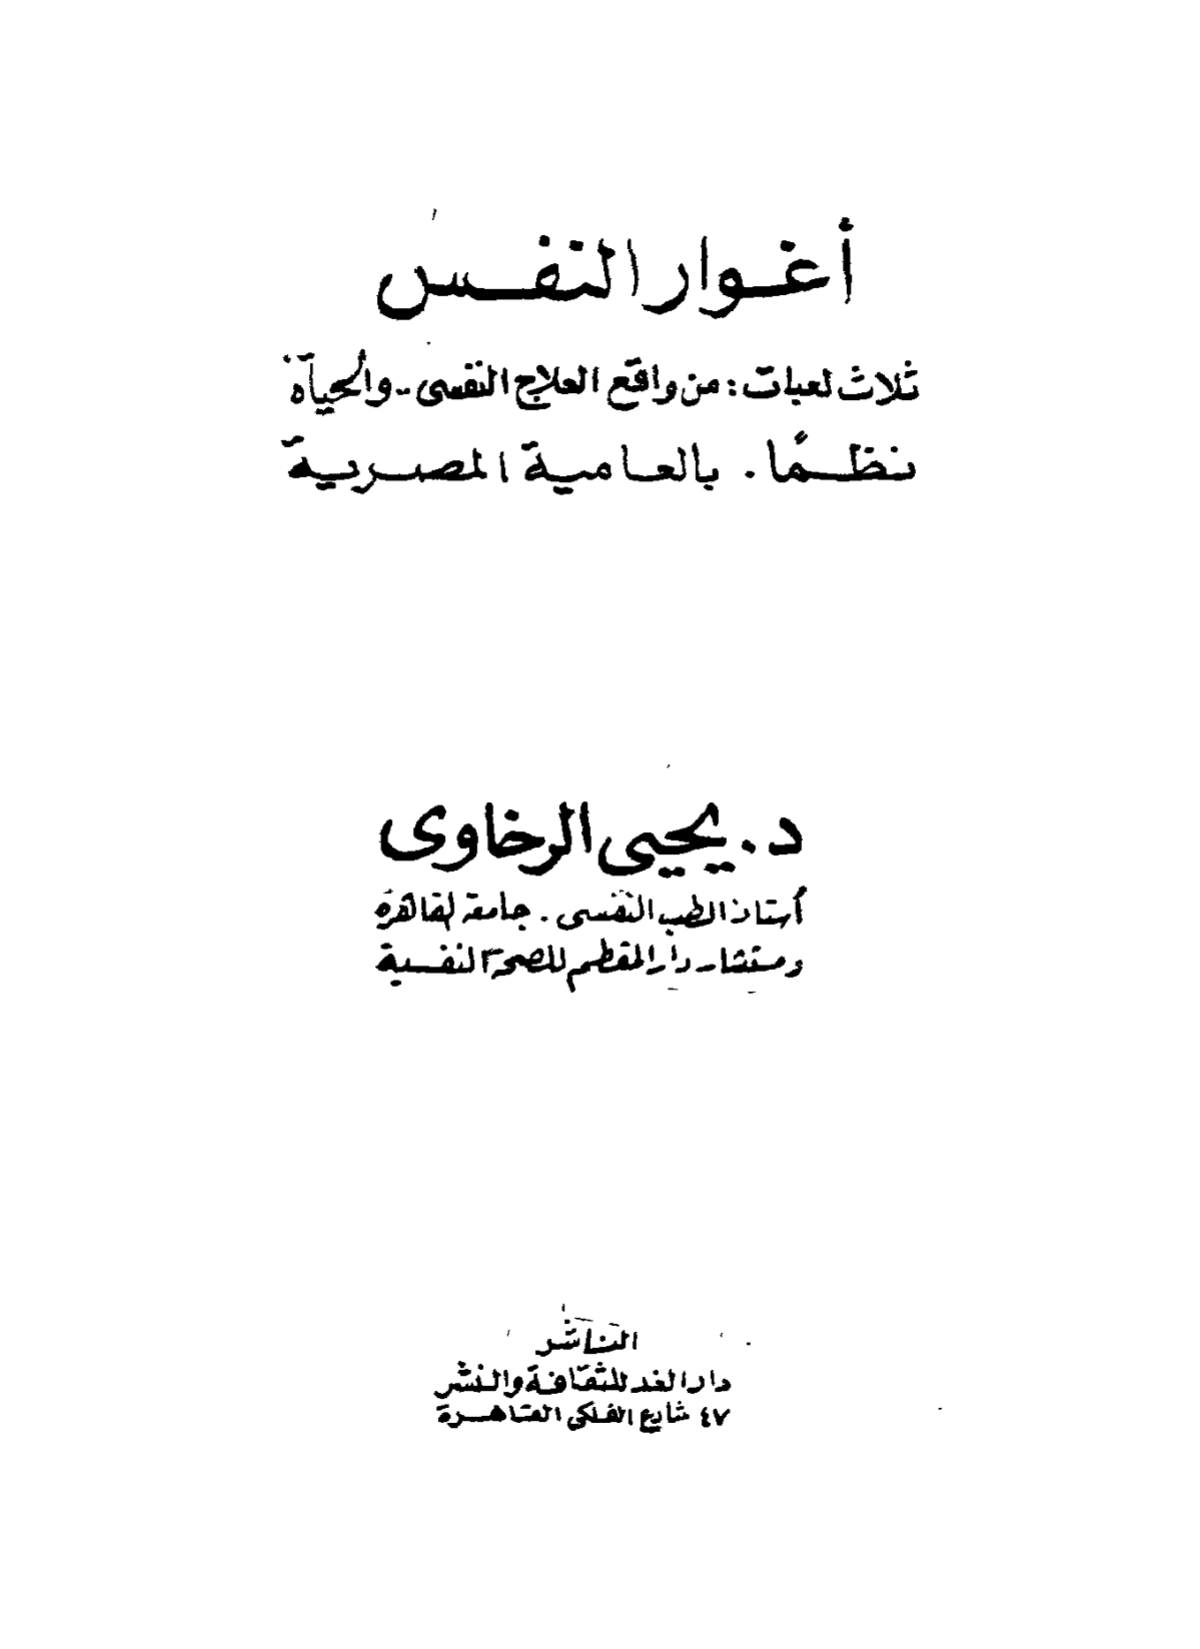 أغوار النفس
ثلاث لعبات : من واقع العلاج النفسى .. والحياة
نظمًا . بالعامية المصرية
د . يحيى الرخاوى
أستاذ الطب النفسى . جامعة القاهرة
ومستشار دار المقطم للصحة النفسية
الناشر
دار الغد للثقافة والنشر
٤٧ شارع الفلكى القاهرة